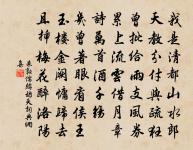 我是清都山水郎
天教分付與疏狂
曾批給雨支風券
累上流雲借月章
詩萬首酒千觴
幾曾著眼看侯王
玉樓金闕慵歸去
且插梅花醉洛陽
朱敦儒鷓鴣天